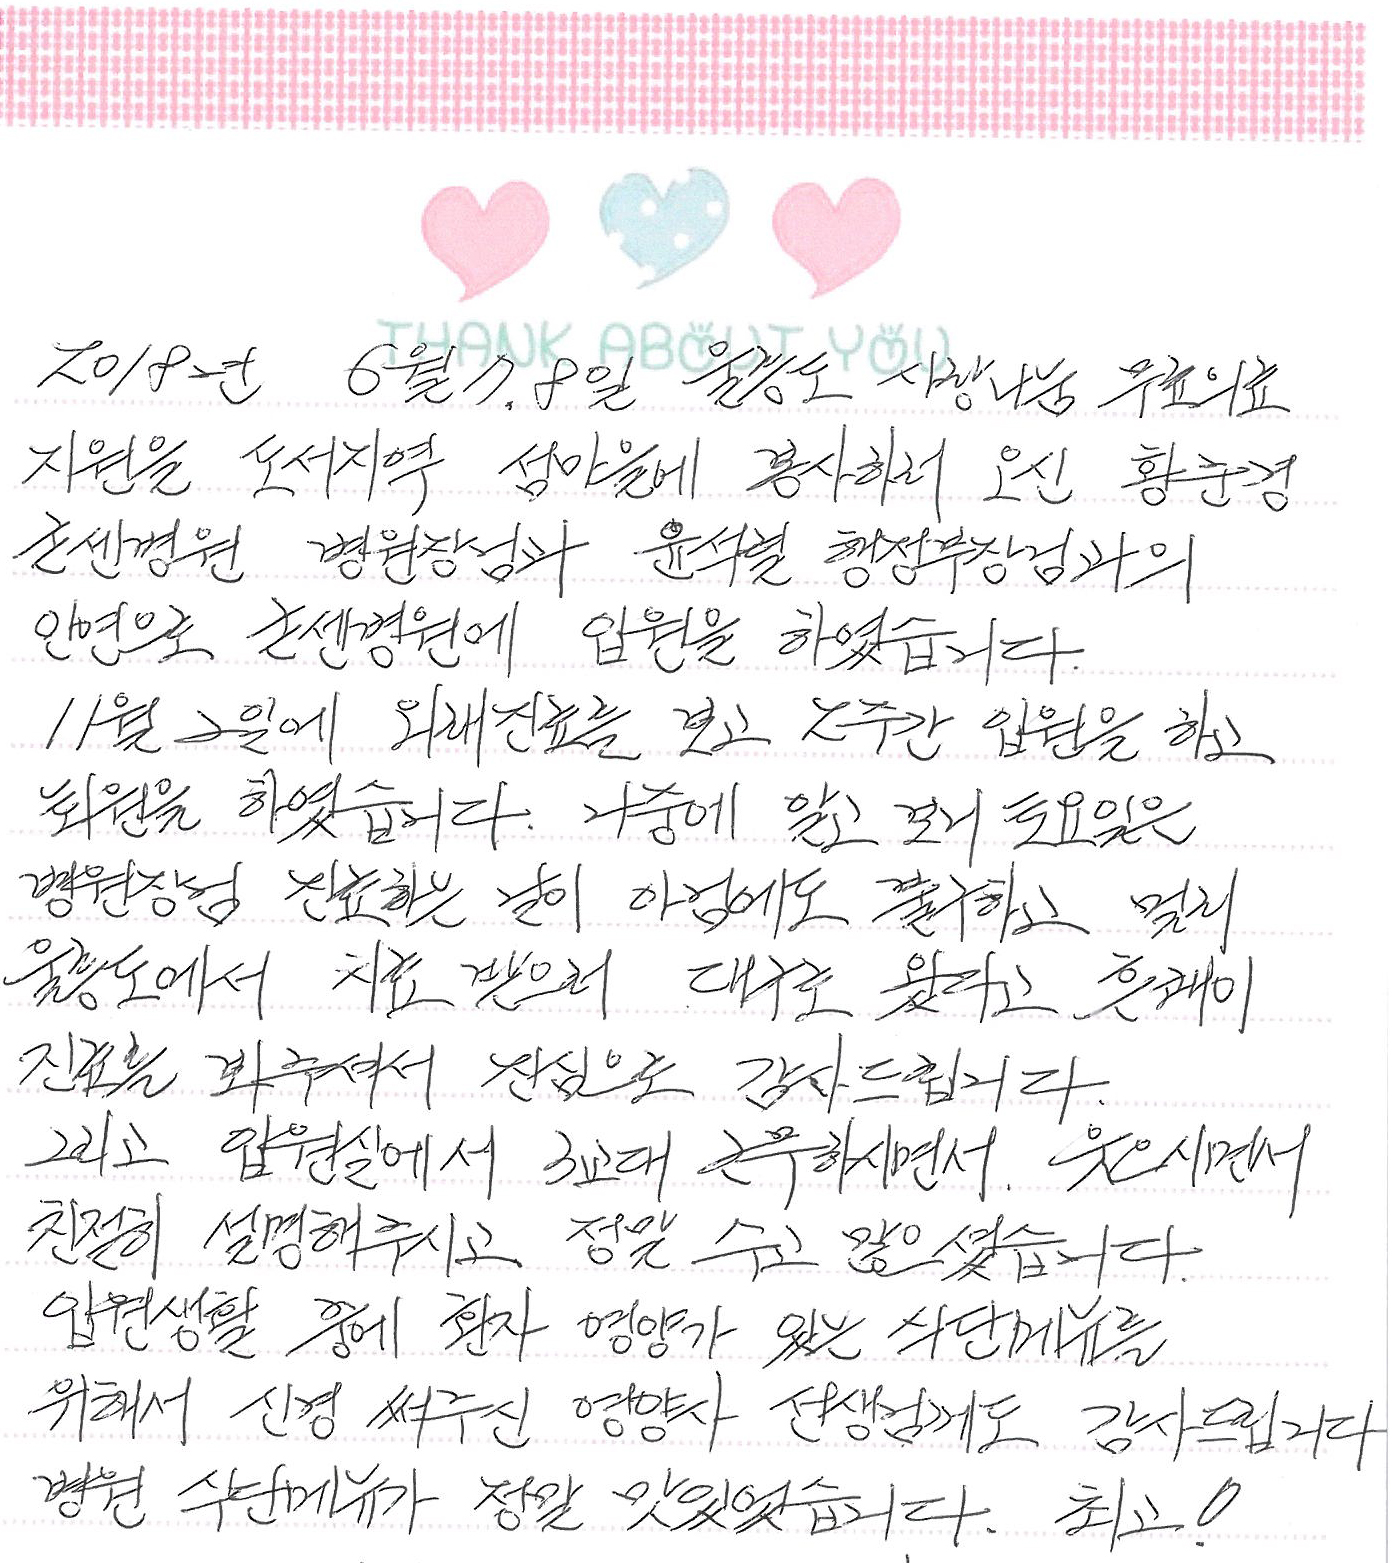 THANK ABOUT YOU
2018년 6월 7.8일 울릉도 사랑나눔 무료의료
지원을 도서지역 섬마을에 봉사하러 오신 황준경
굳센병원 병원장님과 윤석렬 행정부장님과의
인연으로 굳센병원에 입원을 하였습니다.
11월 2일에 외래진료를 보고 2주간 입원을 하고
퇴원을 하였습니다. 나중에 알고 보니 토요일은
병원장님 진료하는 날이 아님에도 불구하고 멀리
울릉도에서 치료 받으러 대구로 왔다고 흔쾌이
진료를 봐주셔서 진심으로 감사드립니다.
그리고 입원실에서 3교대 근무하시면서. 웃으시면서
친절히 설명해주시고 정말 수고 많으셨습니다.
입원생활 중에 환자 영양가 있는 식단메뉴를
위해서 신경 써주신 영양사 선생님께도 감사드립니다
병원 식단메뉴가 정말 맛있었습니다. 최고!